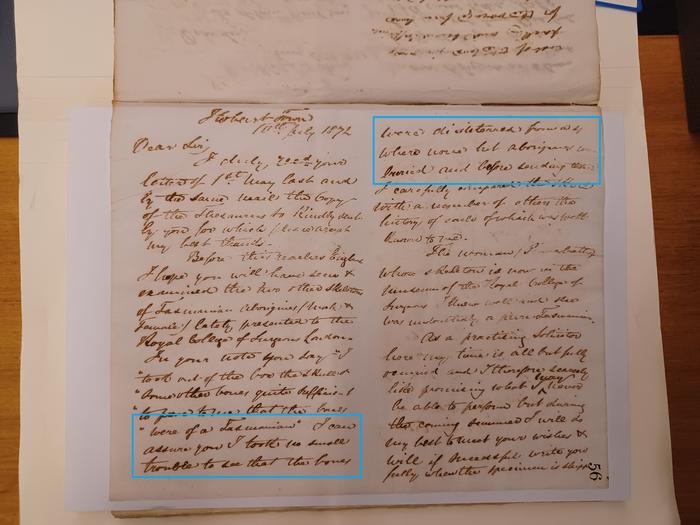 Hobart Town
11th July 1872
Dear Sir,
I duly recd your
letter of 1st May last and
by the same mail the copy
of the Thesaurus so kindly sent
by you for which please accept
my best thanks.
Before this reaches England
I hope you will have seen &
examined the two other skeletons
of Tasmanian Aborigines (male &
female) lately presented to the
Royal College of Surgeons London.
In your note you say "I
"took out of the box the skull &
"some other bones quite sufficient
"to prove to me that the bones
"were of a Tasmanian" I can
assure you I took no small
trouble to see that the bones
were disinterred from a
where none but aborigines
buried and before sending them
I carefully compared the skull
with a number of others the
history of each of which was well
known to me.
The woman
whose skeleton is now in the
museum of the Royal College of
Surgeons I knew well and she
was undoubtedly a pure Tasmanian.
As a practising Solicitor
here my time is all but fully
occupied and I therefore scarcely
like promising what I may never
be able to perform but during
the coming summer I will do
my best to meet your wishes &
will if successful write you
fully when the specimen is
56